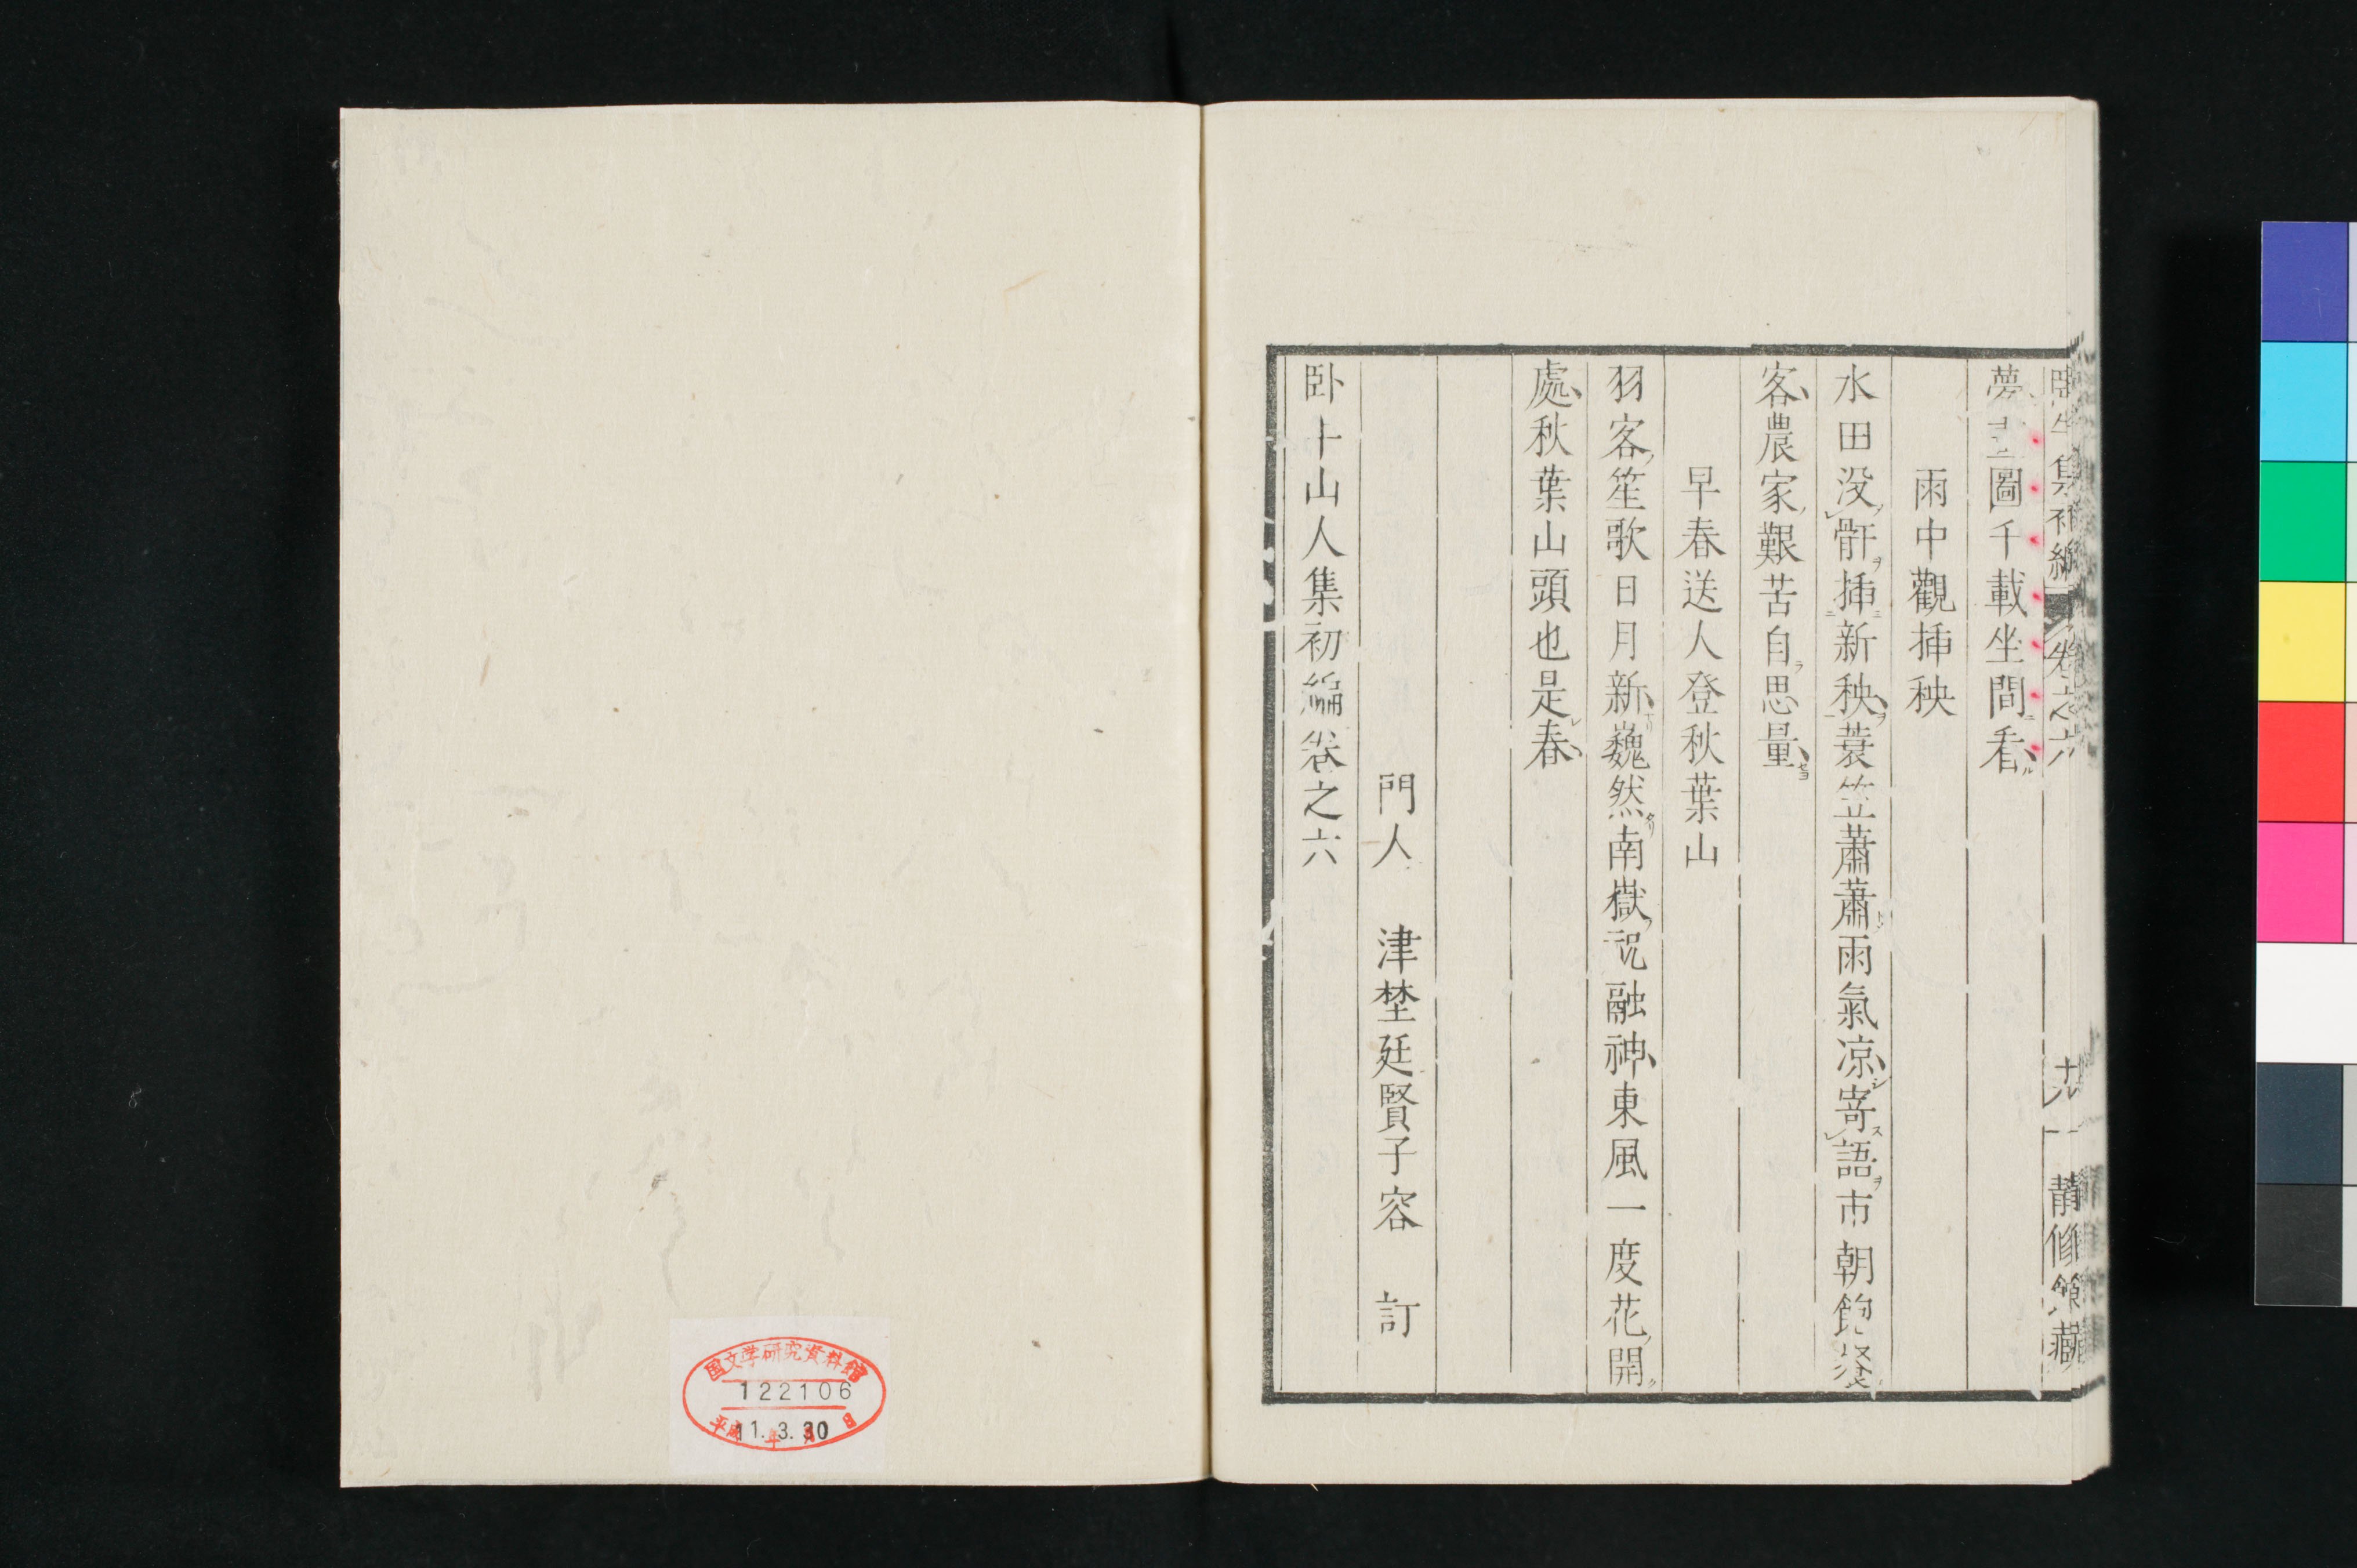 夢圖千載坐間看
雨中觀挿秧
水田没骭挿新秧蓑笠蕭蕭雨氣凉寄語市朝飽
客農家艱苦自思量
早春送人登秋葉山
羽客笙歌日月新巍然南嶽祝融神東風一度花開
處秋葉山頭也是春
門人　津埜廷賢子容　訂
卧牛山人集初編卷之六
国文学研究資料館
122106
平成 11.年3.月30日